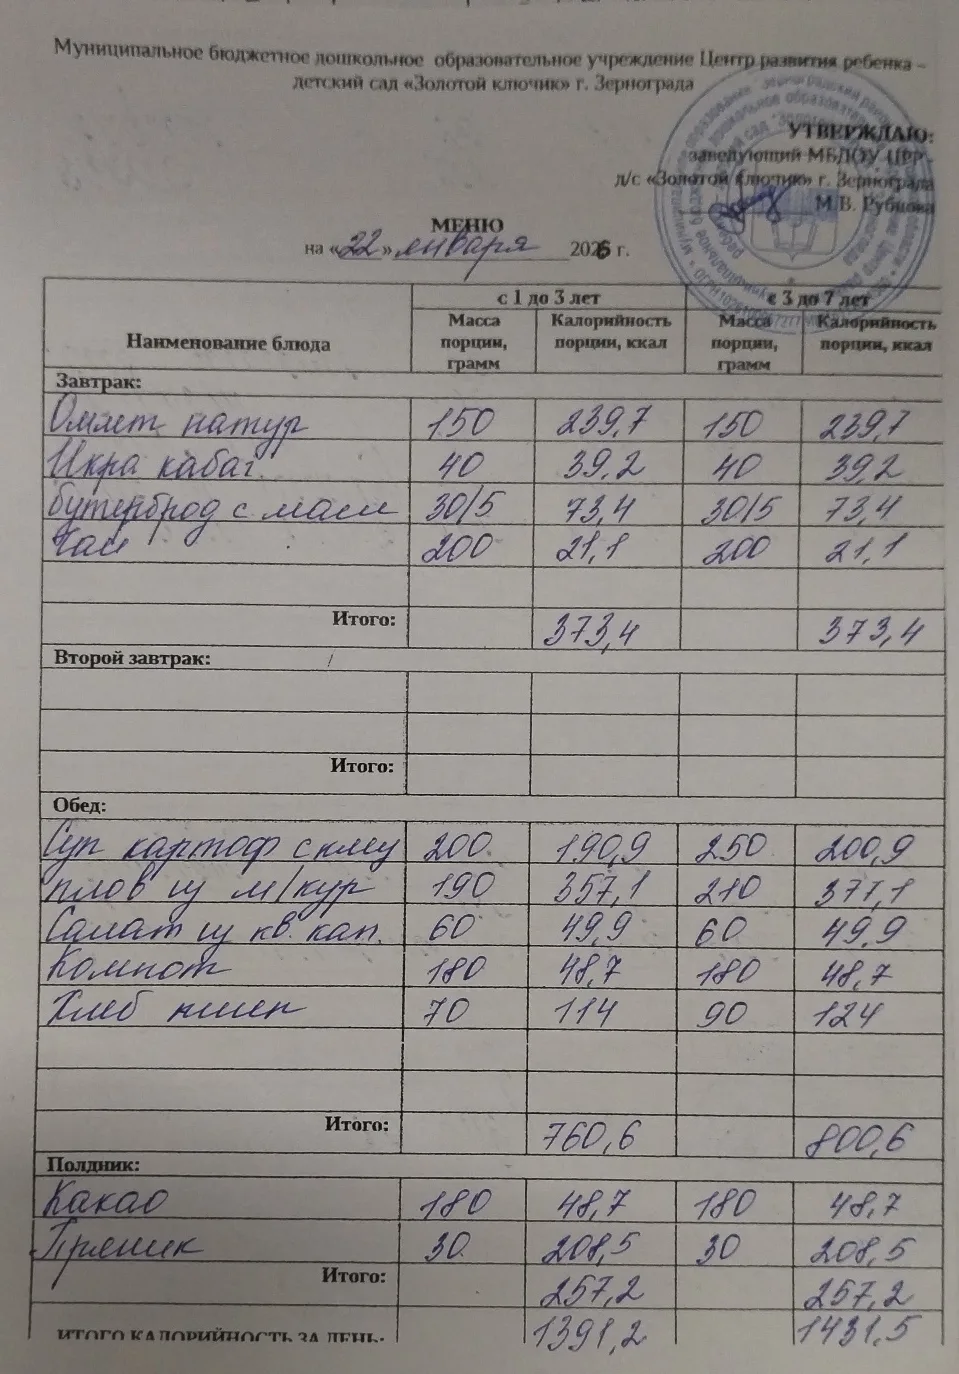 Муниципальное бюджетное дошкольное образовательное учреждение Центр развития ребенка –
детский сад «Золотой ключик» г. Зернограда
УТВЕРЖДАЮ:
заведующий МБДОУ ЦРР -
д/с «Золотой ключик» г. Зернограда
М.В. Рубцова
МЕНЮ
на «22» января 2026 г.
Наименование блюда с 1 до 3 лет с 3 до 7 лет
Масса порции, грамм Калорийность порции, ккал Масса порции, грамм Калорийность порции, ккал
Завтрак:
Омлет натур 150 239,7 150 239,7
Икра кабаг. 40 39,2 40 39,2
бутерброд с масл 30/5 73,4 30/5 73,4
Чай 200 21,1 200 21,1
Итого: 373,4 373,4
Второй завтрак:
Итого:
Обед:
Суп картоф с клц 200 190,9 250 200,9
плов из м/кур 190 357,1 210 377,1
Салат из кв. кап. 60 49,9 60 49,9
Компот 180 48,7 180 48,7
Хлеб пшен 70 114 90 124
Итого: 760,6 800,6
Полдник:
Какао 180 48,7 180 48,7
Пряник 30 208,5 30 208,5
Итого: 257,2 257,2
ИТОГО КАЛОРИЙНОСТЬ ЗА ДЕНЬ: 1391,2 1431,5